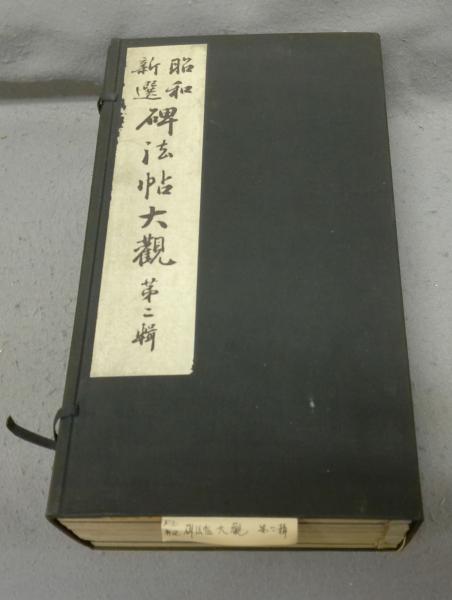 昭和
新選
碑法帖大觀 第二輯
碑法帖大觀 第二輯